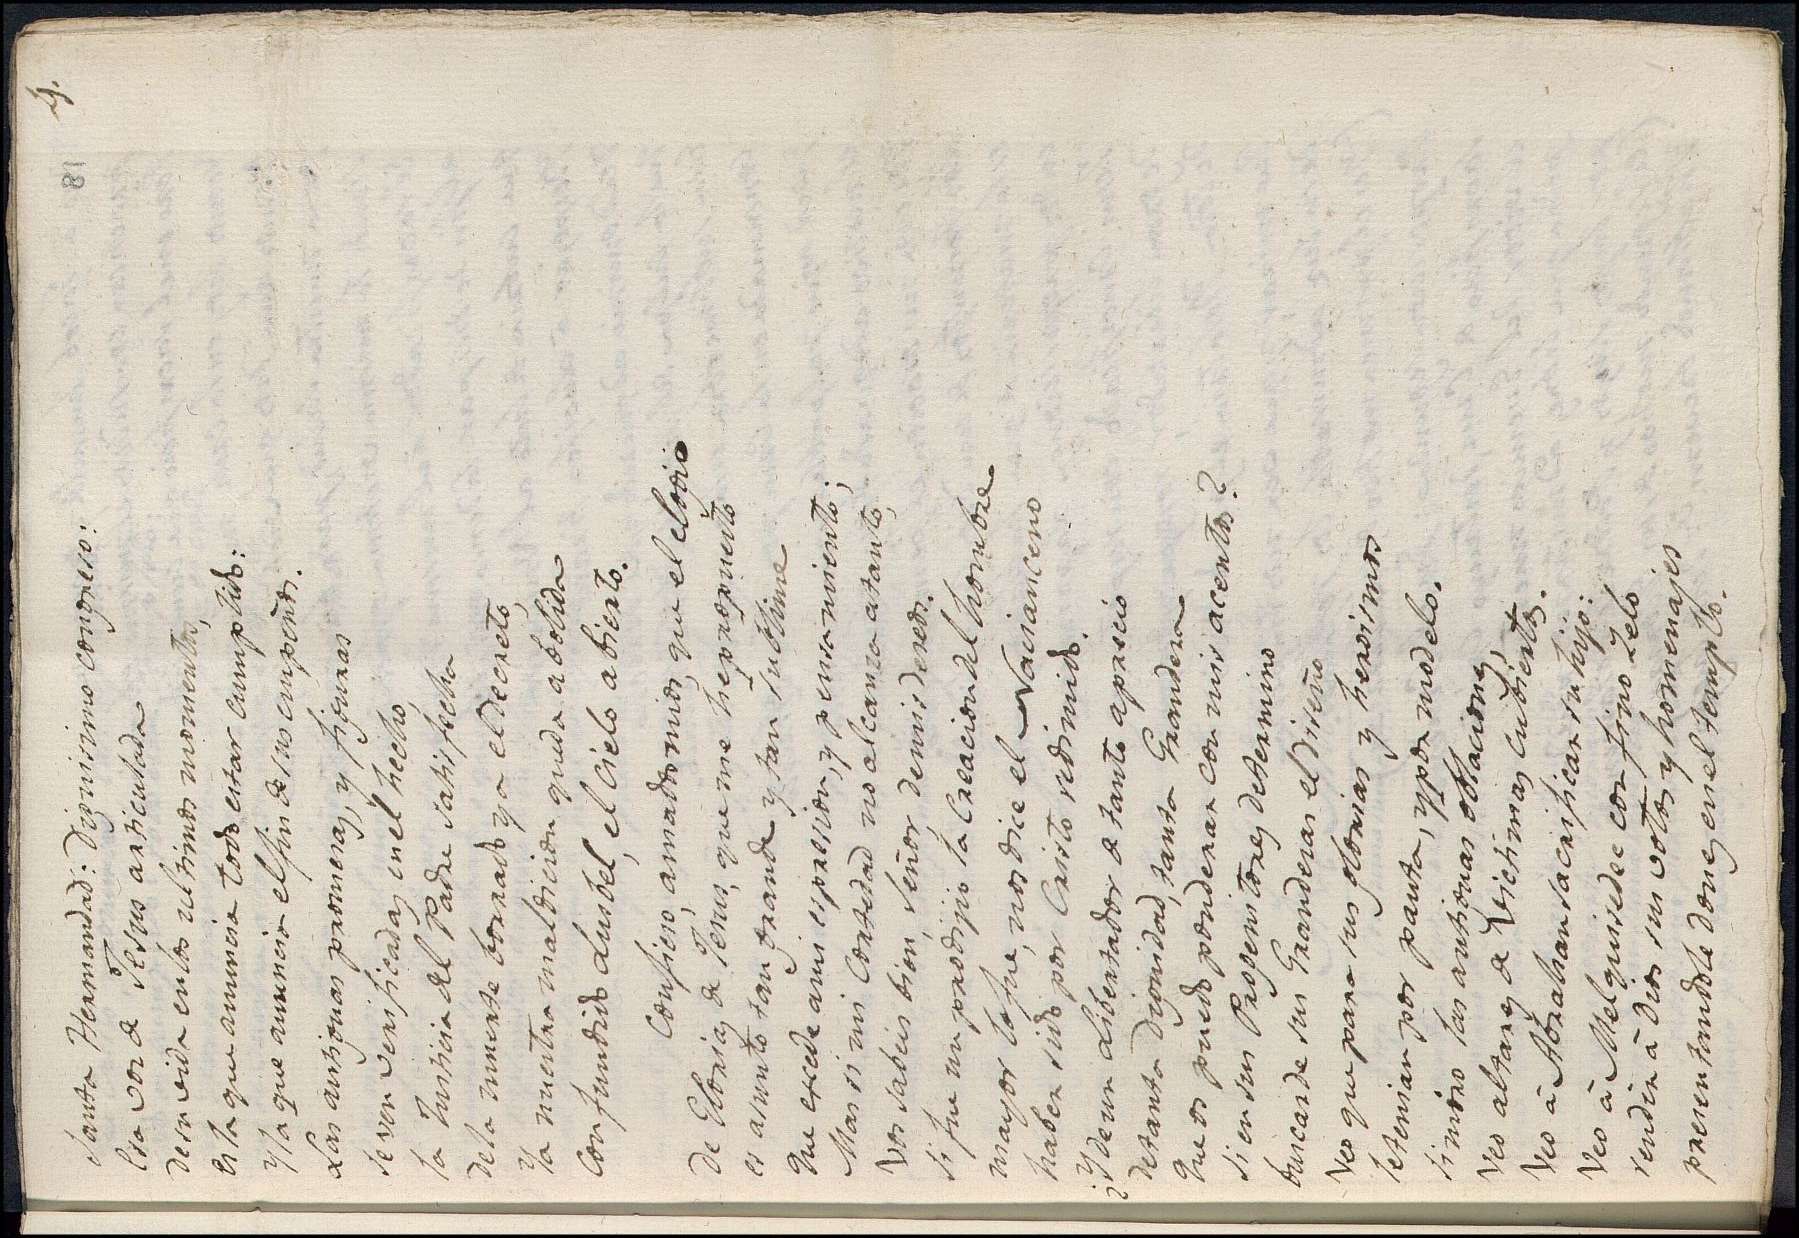 4.
18
Santa Hermandad: Dignisimo congreso:
Esa voz de Jesus articulada
de su vida en los ultimos momentos,
es la que anuncia todo estar cumplido:
y la que anuncia el fin de sus empeños.
Las antiguas promesas, y figuras
se ven verificadas en el hecho,
la Justicia del Padre satisfecha
dela muerte borrado ya el decreto,
ya nuestra maldicion queda abolida
Confundido Lusbel, el cielo abierto.
Confieso, amados mios, que el elogio
De Glorias de Jesus, que me he propuesto
es asunto tan grande y tan sublime
Que excede a mi expresion, y pensamiento;
Mas si mi cortedad no alcanza a tanto,
Vos sabeis bien, Señor de mis deseos.
Si fue un prodijio la Creacion del hombre
mayor lo fue, nos dice el Nacianceno
haber sido por Cristo redimido.
¿Y de un Libertador de tanto aprecio
de tanta Dignidad, tanta Grandeza
Que os puedo ponderar con mis acentos?
Si en sus Progenitores determino
buscar de sus Grandezas el diseño
Veo que para sus glorias y heroismos
se tenian por pauta, y por modelo.
Si miro las antiguas oblaciones,
Veo altares de Victimas cubiertos.
Veo â Abrahan sacrificar su hijo:
Veo â Melquisedec con fino Zelo
rendir â Dios sus votos y homenajes
presentandole dones en el templo.